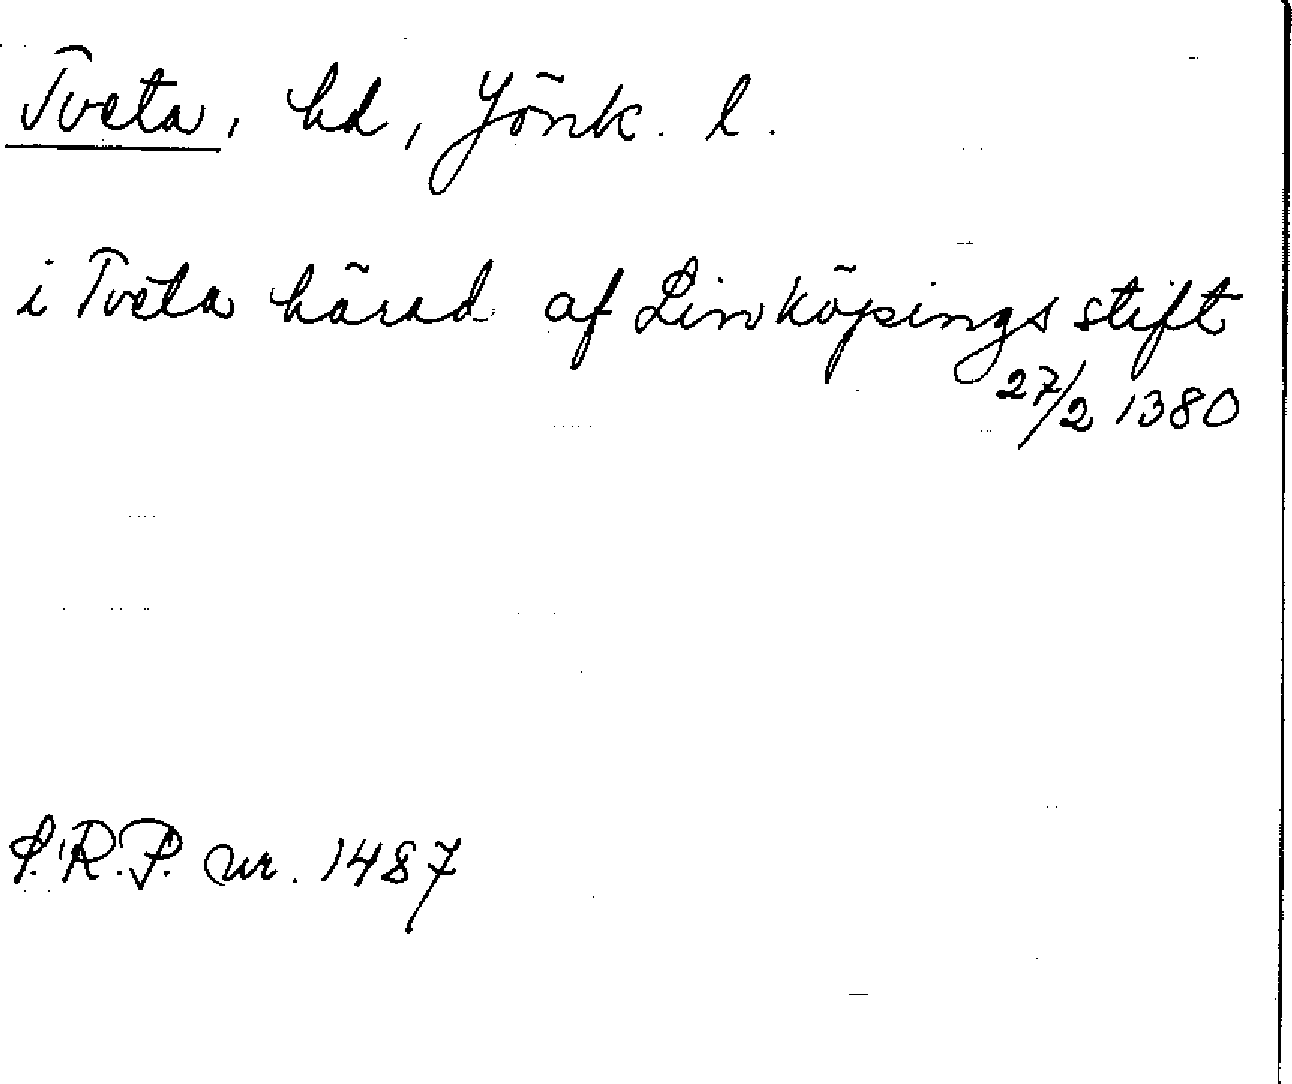 Tveta, hd, Jönk. l.
i Tveta härad af Linköpings stift
27/2 1380
S.R.P. nr. 1487